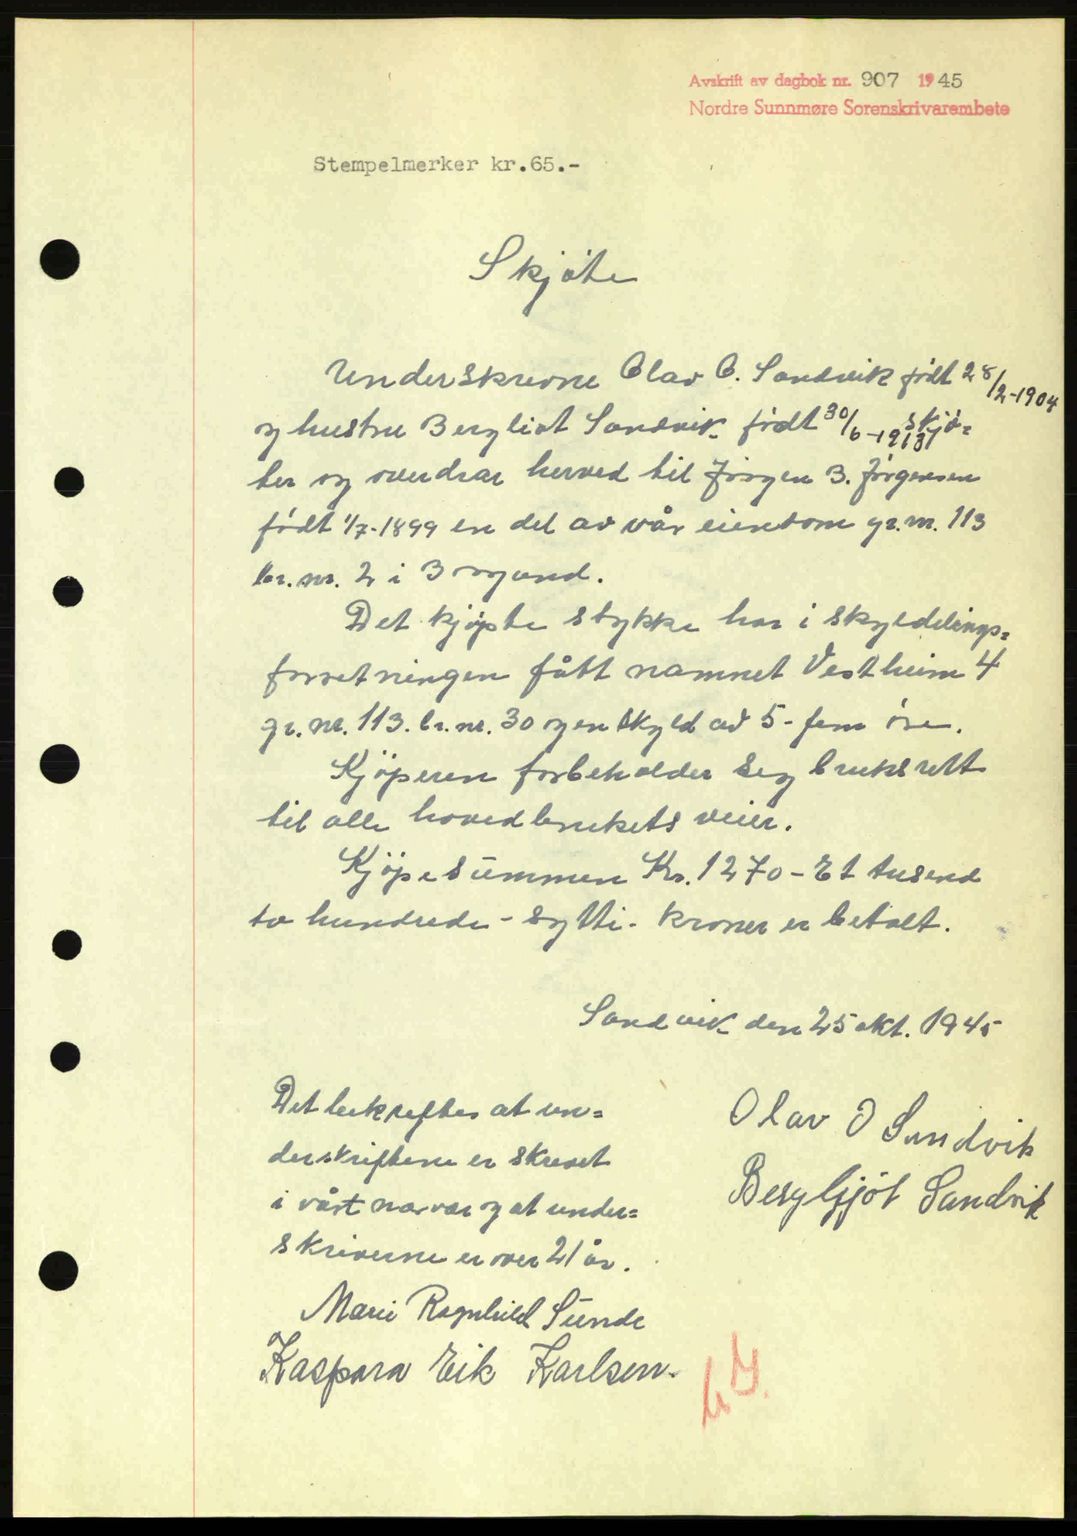 Avskrift av dagbok nr. 907 1945
Nordre Sunnmøre Sorenskrivarembete
Stempelmerker kr.65.-
Skjöte
Underskrevne Olav O. Sandvik födt 28/2-1904
og hustru Bergliot Sandvik födt 30/6-1913 skjö=
ter og overdrar herved til Jörgen B. Jörgensen
födt 1/7-1899 en del av vår eiendom gr. nr. 113
br. nr. 2 i Brogund.
Det kjöpte stykke har i skylddelings=
forretningen fått namnet Vestheim 4
gr. nr. 113. br. nr. 30 og en skyld av 5- fem öre.
Kjöperen forbeholder seg bruksrett
til alle hovedbrukets veier.
Kjöpesummen Kr. 1270- Et tusend
to hundrede - sytti - kroner er betalt.
Sandvik den 25 okt. 1945
Det bekreftes at un=
derskriftene er skrevet
i vårt nærvær og at under=
skriverne er over 21 år.
Olav O Sandvik
Bergljot Sandvik
Marie Ragnhild Sunde
Kaspara Eik Karlsen.